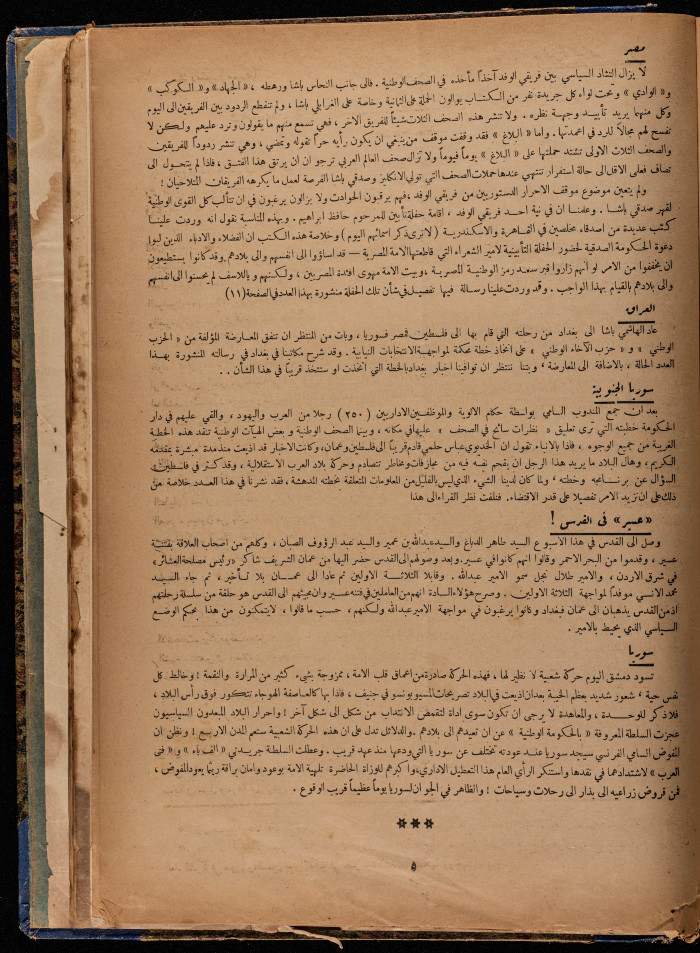 مصر
لا يزال التشاد السياسي بين فريقي الوفد آخذاً مأخذه في الصحف الوطنية . فالى جانب النحاس باشا ورهطه ، « الجهاد » و« الكوكب »
و« الوادي » وتحت لواء كل جريدة نفر من الكتاب يوالون الحملة على الثمانية وخاصة على الغرابلي باشا ، ولم تنقطع الردود بين الفريقين الى اليوم
وكل منهما يريد تأييد وجهة نظره . ولا تنشر هذه الصحف الثلاث شيئاً للفريق الآخر ، فهي تسمع منهم ما يقولون وترد عليهم ولكن لا
تفسح لهم مجالا للرد في اعمدتها . واما « البلاغ » فقد وقفت موقف من ينبغي ان يكون رأيه حراً تقوله وتمضي ، وهي تنشر ردوداً للفريقين
والصحف الثلاث الاولى تشتد حملتها على « البلاغ » يوماً فيوماً ولا تزال صحف العالم العربي ترجو ان ان يرتق هذا الفتق ، فاذا لم يتحول الى
تضاف فعلى الاقل الى حالة استقرار تنتهي عندها حملات الصحف التي تولي الانكليز وصدقي باشا الفرصة لعمل ما يكرهه الفريقان المتلاحيان !
ولم يتعين موضوع موقف الاحرار الدستوريين من فريقي الوفد ، فهم يرقبون الحوادث ولا يزالون يرغبون في ان تتألب كل القوى الوطنية
لقهر صدقي باشا . وعلمنا ان في نية احد فريقي الوفد ، اقامة حفلة تأبين للمرحوم حافظ ابراهيم . وبهذه المناسبة نقول انه وردت علينا
كتب عديدة من اصدقاء مخلصين في القاهرة والاسكندرية ( لا نرى ذكر اسمائهم اليوم ) وخلاصة هذه الكتب ان الفضلاء والادباء الذين لبوا
دعوة الحكومة الصدقية لحضور الحفلة التأبينية لامير الشعراء التي قاطعتها الامة المصرية — قد اساؤوا الى انفسهم والى بلادهم . وقد كانوا يستطيعون
ان يخففوا من الامر لو انهم زاروا قبر سعد رمز الوطنية المصرية ، وبيت الامة مهوى افئدة المصريين ، ولكنهم وياللاسف لم يحسنوا الى انفسهم
والى بلادهم بالقيام بهذا الواجب . وقد وردت علينا رسالة فيها تفصيل في شأن تلك الحفلة منشورة بهذا العدد في الصفحة (١١)
العراق
عاد الهاشمي باشا الى بغداد من رحلته التي قام بها الى فلسطين فمصر فسوريا ، وبات من المنتظر ان تتفق المعارضة المؤلفة من « الحزب
الوطني » و« حزب الآخاء الوطني » على اتخاذ خطة محكمة لمواجهة الانتخابات النيابية . وقد شرح مكاتبنا في بغداد في رسالته المنشورة بهذا
العدد الحالة ، بالاضافة الى المعارضة ، وبتنا ننتظر ان توافينا اخبار بغداد بالخطة التي اتخذت او ستتخذ قريباً في هذا الشأن . .
سوريا الجنوبية
بعد ان جمع المندوب السامي بواسطة حكام الالوية والموظفين الاداريين ( ٢٥٠ ) رجلا من العرب واليهود ، والقي عليهم في دار
الحكومة خطبته التي ترى تعليق « نظرات سائح في الصحف » عليها في مكانه ، وبينما الصحف الوطنية و بعض الهيآت الوطنية تنقد هذه الخطبة
الغريبة من جميع الوجوه ، فاذا بالانباء تقول ان الخديوي عباس حلمي قادم قريباً الى فلسطين وعمان ، وكانت الاخبار قد اذيعت منذ مدة مبشرة بمقدمه
الكريم ، وهال البلاد ما يريد هذا الرجل ان يقحم نفسه فيه من مجازفات ومخاطر تتصادم وحركة بلاد العرب الاستقلالية ، وقد كثر في فلسطين
السؤال عن برنامجه وخطته ، ولما كان لدينا الشيء الذي ليس بالقليل من المعلومات المتعلقة بخطته المدهشة ، فقد نشرنا في هذا العدد خلاصة عن
ذلك على ان نزيد الامر تفصيلا على قدر الاقتضاء . فنلفت نظر القراء الى هذا
«عسير» فى القدس !
وصل الى القدس في هذا الاسبوع السيد طاهر الدباغ والسيد عبدالله بن عمير والسيد عبد الرؤوف الصبان ، وكلهم من اصحاب العلاقة بفتنة
عسير ، وقدموا من البحر الاحمر وقالوا انهم كانوا في عسير . وبعد وصولهم الى القدس حضر اليها من عمان الشريف شاكر «رئيس مصلحة العشائر»
في شرق الاردن ، والامير طلال نجل سمو الامير عبدالله . وقابلا الثلاثة الاولين ثم عادا الى عمان بلا تأخير ، ثم جاء السيد
محمد الانسي موفداً لمواجهة الثلاثة الاولين . وصرح هؤلاء السادة انهم من العاملين في فتنة عسير وان مجيئهم الى القدس هو حلقة من سلسلة رحلتهم
اذ من القدس يذهبان الى عمان فبغداد وكانوا يرغبون في مواجهة الامير عبدالله ولكنهم ، حسب ما قالوا ، لا يتمكنون من هذا بحكم الوضع
السياسي الذي يحيط بالامير .
سوريا
تسود دمشق اليوم حركة شعبية لا نظير لها ، فهذه الحركة صادرة من اعماق قلب الامة ، ممزوجة بشيء كثير من المرارة والنقمة ! وخالط كل
نفس حية ، شعور شديد بعظم الخيبة بعد ان اذيعت في البلاد تصريحات المسيو بونسو في جنيف ، فاذا بها كالعاصفة الهوجاء تتكور فوق رأس البلاد ،
فلا ذكر للوحدة ، والمعاهدة لا يرجى ان تكون سوى اداة لتقمص الانتداب من شكل الى شكل آخر ! واحرار البلاد المبعدون السياسيون
عجزت السلطة المعروفة « بالحكومة الوطنية » عن ان تعيدهم الى بلادهم . والدلائل تدل على ان هذه الحركة الشعبية ستعم المدن الاربع ! ونظن ان
المفوض السامي الفرنسي سيجد سوريا عند عودته تختلف عن سوريا التي ودعها منذ عهد قريب . وعطلت السلطة جريدتي « الف باء » و« فتى
العرب » لاشتدادهما في نقدها واستنكر الرأي العام هذا التعطيل الاداري ، واكبرهم للوزاة الحاضرة تلهية الامة بوعود وامان براقة ريثما يعود المفوض ،
فمن قروض زراعيه الى بذار الى رحلات وسياحات ! والظاهر في الجو ان لسوريا يوماً عظيماً قريب الوقوع .
***
٥